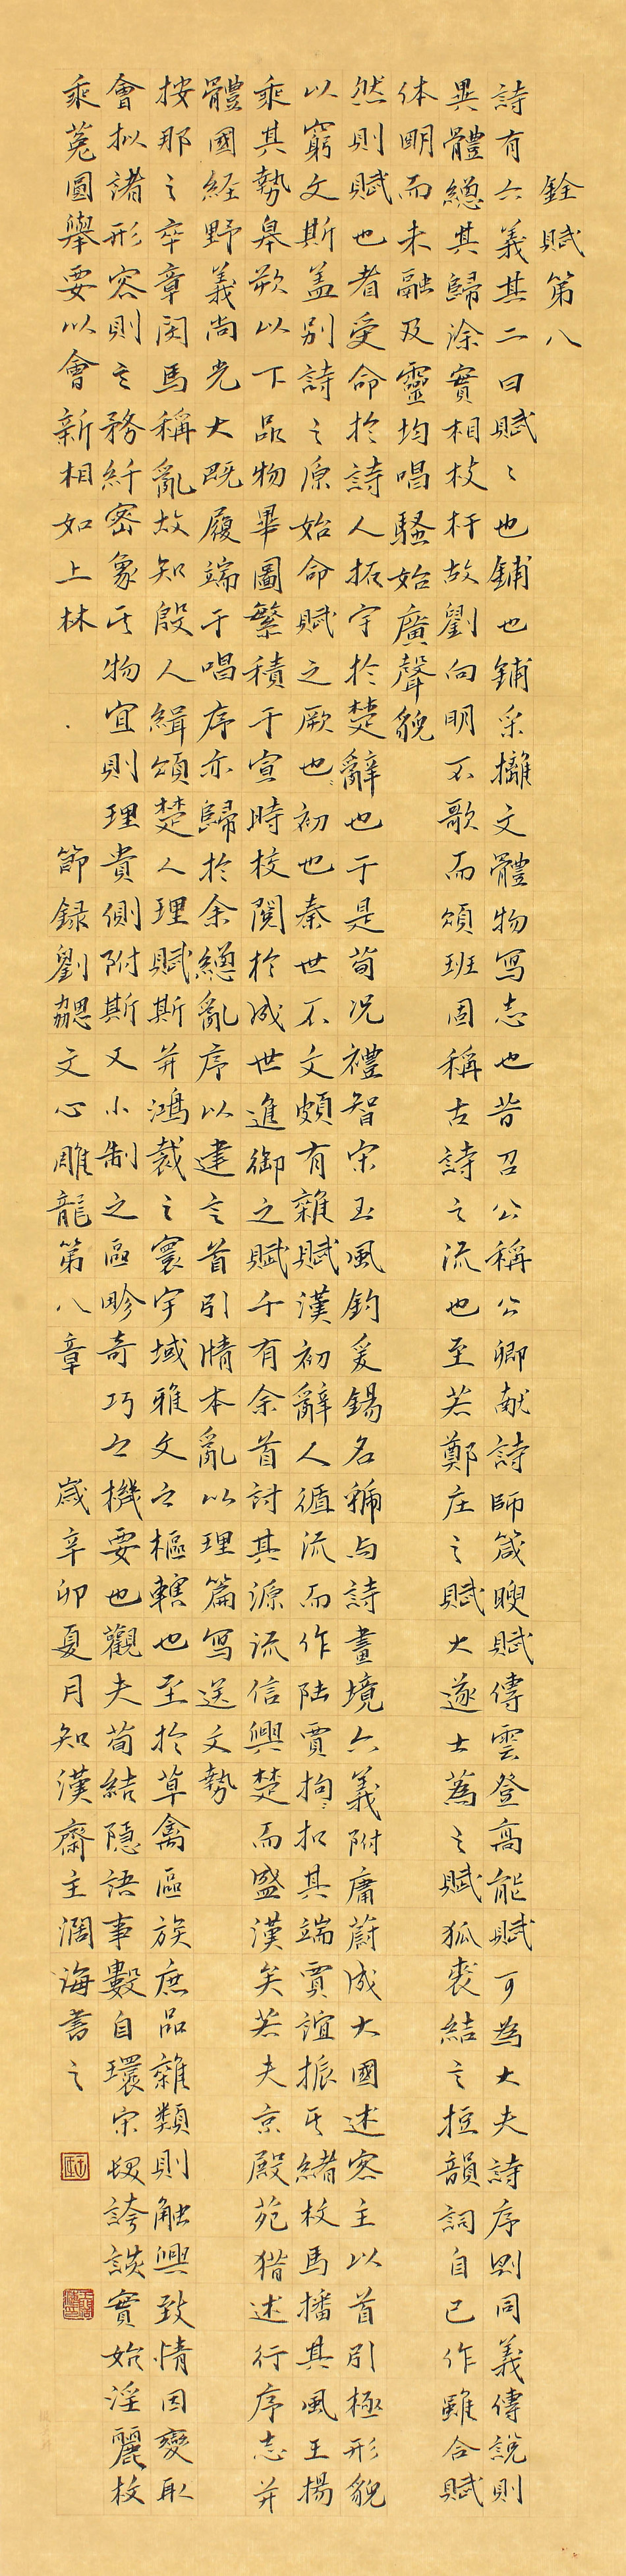 銓賦第八
詩有六義其二曰賦々也鋪也鋪采攡文體物寫志也昔召公稱公卿献詩師箴瞍賦傳雲登高能賦可為大夫詩序則同義傳說則
異體緫其歸涂實相枝杆故劉向明不歌而頌班固稱古詩之流也至若鄭庄之賦大遂士蔿之賦狐裘結言短韻詞自己作雖合賦
体明而未融及靈均唱騷始廣聲貌
然則賦也者受命於詩人拓宇於楚辭也于是荀况禮智宋玉風釣爰錫名稱与詩畫境六義附庸蔚成大國述客主以首引極形貌
以窮文斯盖别詩之原始命賦之厥也初也秦世不文頗有雜賦漢初辭人循流而作陆賈拘扣其端賈誼振其緒枚馬播其風王揚
乘其勢皋朔以下品物畢圖繁積于宣時校閱於成世進御之賦千有余首討其源流信興楚而盛漢矣若夫京殿苑猎述行序志并
體國経野義尚光大既履端于唱序亦歸於余緫亂序以建言首引情本亂以理篇寫送文勢
按那之卒章閔馬稱亂故知殷人緝頌楚人理賦斯并鴻裁之寰宇域雅文之樞轄也至於草禽區族庶品雜類則触興致情因變取
會拟諸形容則言務纤密象其物宜則理貴側附斯又小制之區畛奇巧之機要也觀夫荀結隱語事數自環宋發誇談實始淫麗枚
乘菟圖舉要以會新相如上林
節録劉勰文心雕龍第八章 歲辛卯夏月知漢齋主濶海書之